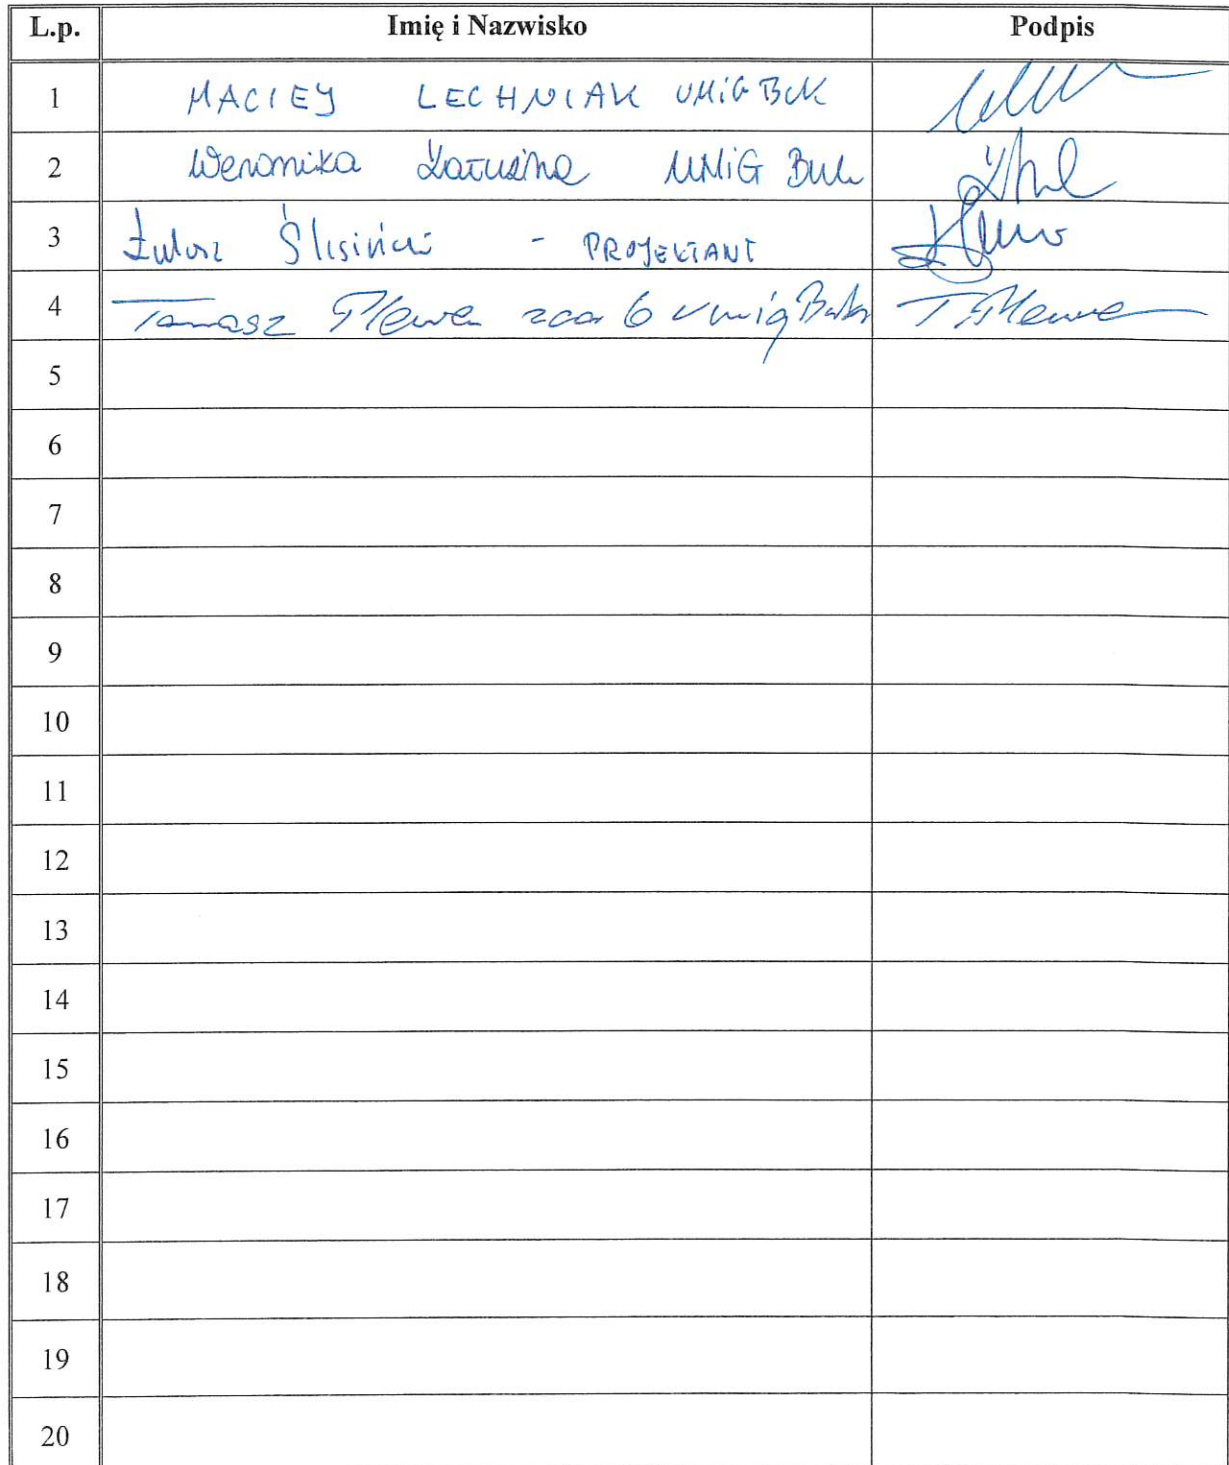 L.p. Imię i Nazwisko Podpis
1 MACIEJ LECHNIAK UMiG BUK
2 Weronika UMiG Buk
3 Łukasz Ślisiński - PROJEKTANT
4 Tomasz Plewa
5
6
7
8
9
10
11
12
13
14
15
16
17
18
19
20